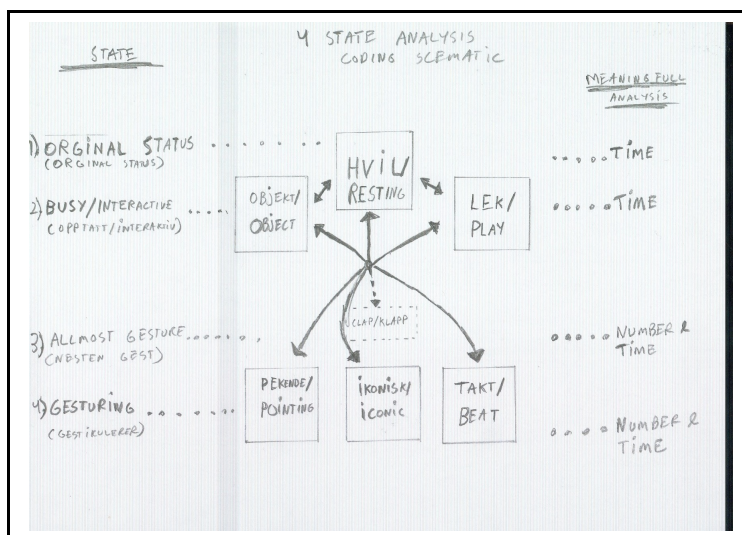 4 STATE ANALYSIS
CODING SCEMATIC
STATE
MEANING FULL
ANALYSIS
1) ORGINAL STATUS
(ORGINAL STATUS)
HVIL/
RESTING
TIME
2) BUSY/INTERACTIVE
(OPPTATT/INTERAKTIV)
OBJEKT/
OBJECT
LEK/
PLAY
TIME
CLAP/KLAPP
3) ALLMOST GESTURE
(NESTEN GEST)
NUMBER &
TIME
4) GESTURING
(GESTIKULERER)
PEKENDE/
POINTING
iKONiSK/
iCONiC
TAKT/
BEAT
NUMBER &
TIME